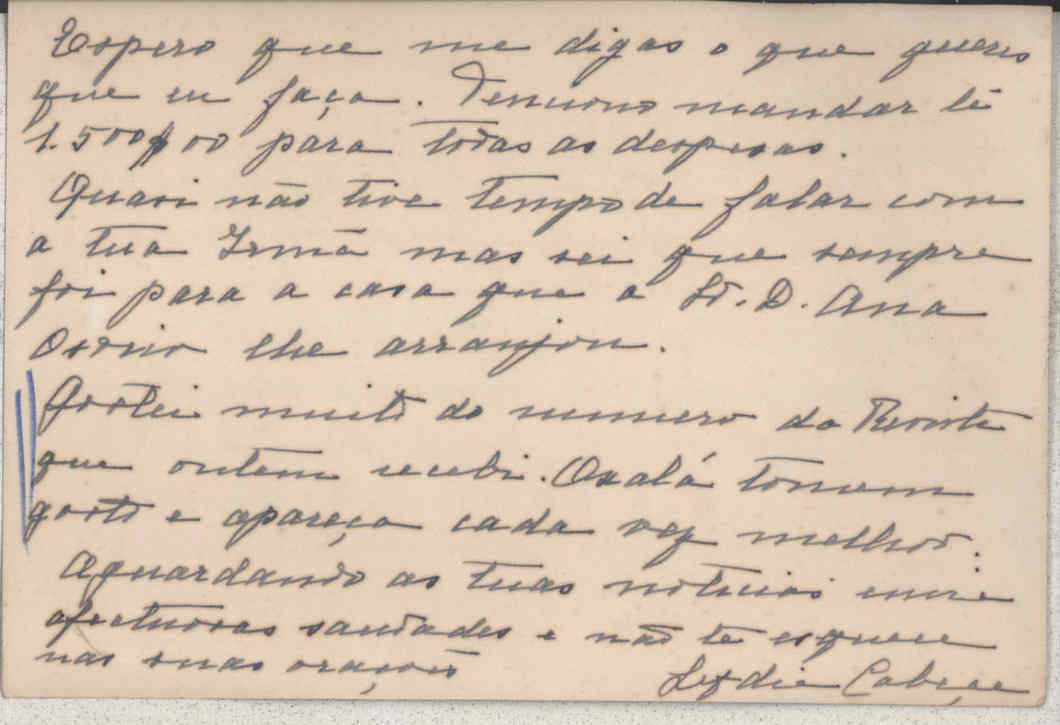 Espero que me digas o que queres
que eu faça. Tenciono mandar té
1.500$00 para todas as despesas.
Quasi não tive tempo de falar com
a tua Irmã mas sei que sempre
foi para a casa que a Sr.ª D. Ana
Osorio lhe arranjou.
Gostei muito do numero da Revista
que ontem recebi. Oxalá tomem
gosto e apareça cada vez melhor.
Aguardando as tuas noticias envie
afectuosas saudades e não te esquece
nas suas orações
Lydia